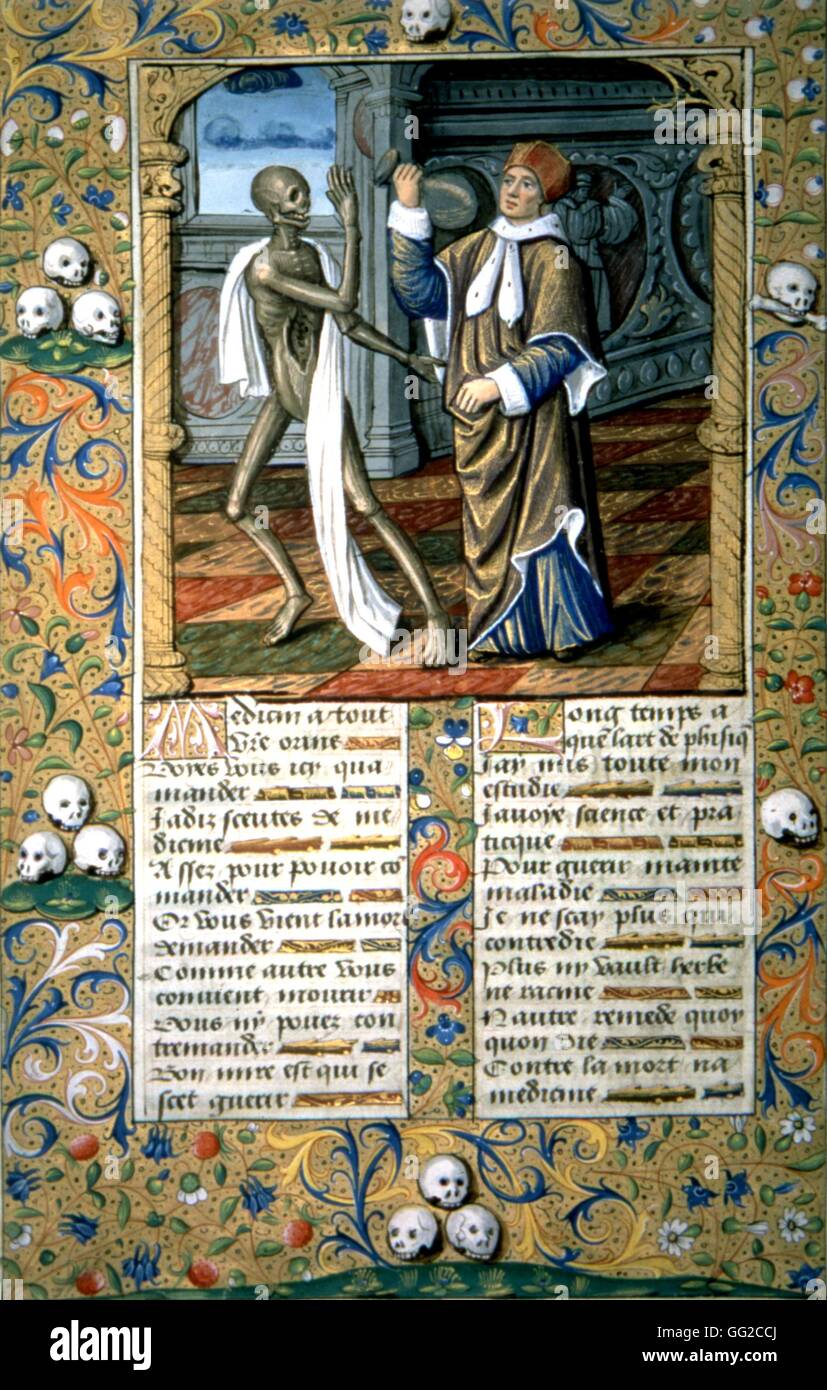 Medicin a tout
vre orine
Voyes vous icy qua
mander
Jadiz sceutes de me
dicine
Assez pour pouoir co
mander
Or vous vient la mort
demander
Comme autre vous
conuient mourir
Vous ny pouez con
tremander
Bon mire est qui se
scet guerir
Long temps a
que lart de phisiq
Jay mis toute mon
estudie
Jauoye science et pra
ticque
Pour guerir mainte
maladie
Je ne scay plus que
contredie
Plus ny vault herbe
ne racine
Nautre remede quoy
quon die
Contre la mort na
medicine
alamy
alamy stock photo
GG2CCJ
www.alamy.com